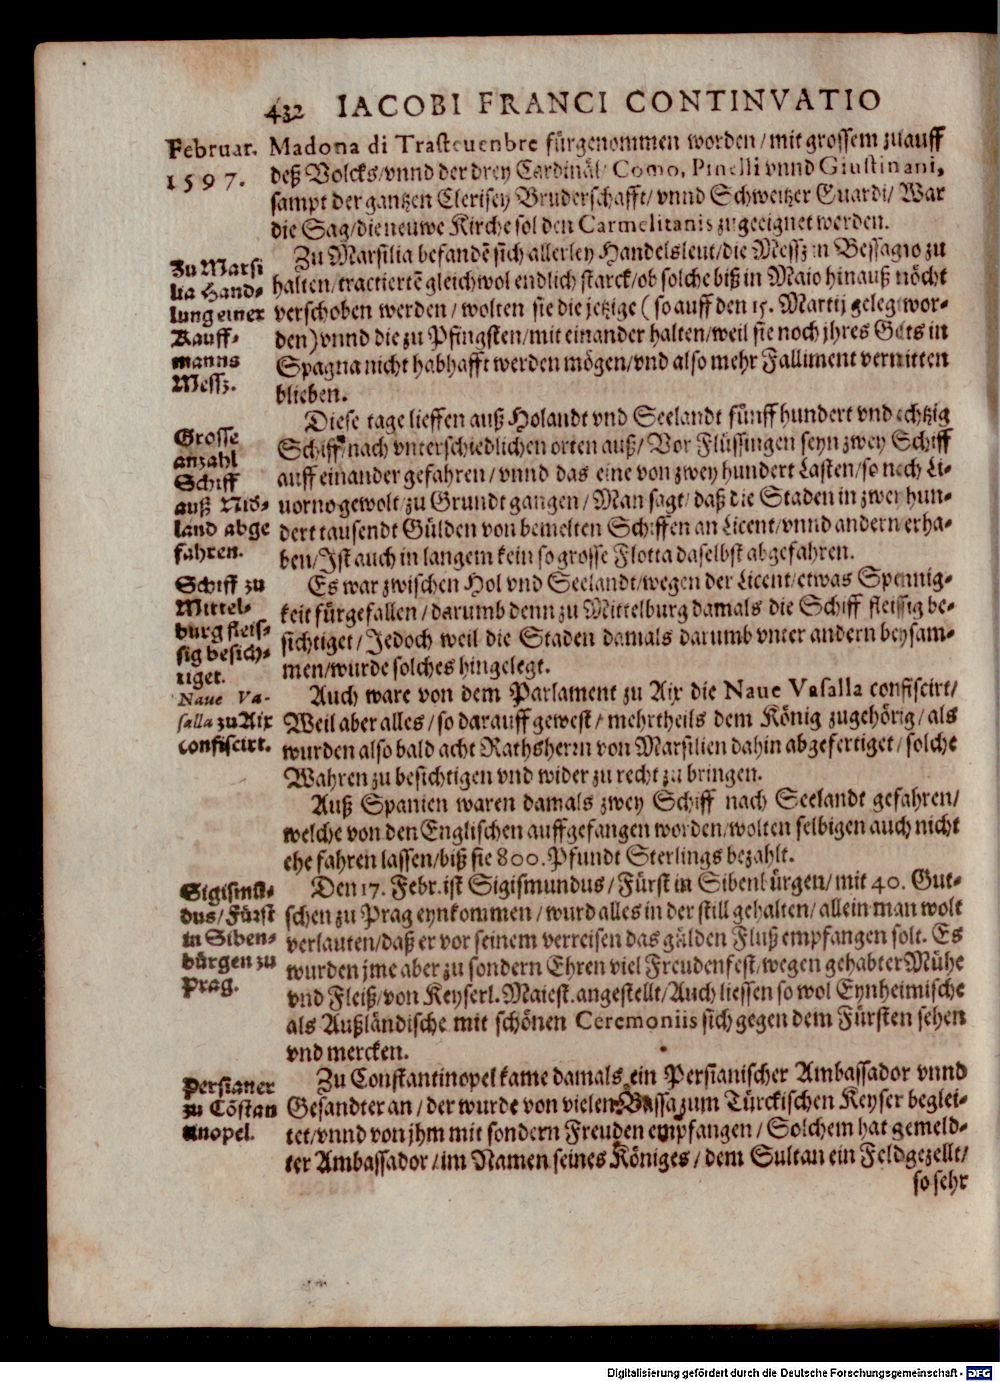 432 IACOBI FRANCI CONTINVATIO
Februar.
1597.
Madona di Trasteuenbre fürgenommen worden / mit grossem zulauff
deß Volcks / vnnd der drey Cardinäl / Como, Pinelli vnnd Giustinani,
sampt der gantzen Clerisey Bruderschafft / vnnd Schweitzer Guardi / War
die Sag / die neuwe Kirche sol den Carmelitanis zugeeignet werden.
Zu Marsi
lia Hand-
lung einer
Kauff-
manns
Messz.
Zu Marsilia befandē sich allerley Handelsleut / die Messz in Bessagio zu
halten / tractiertē gleichwol endlich starck / ob solche biß in Maio hinauß möcht
verschoben werden / wolten sie die jetzige ( so auff den 15. Martij geleg wor-
den) vnnd die zu Pfingsten / mit einander halten / weil sie noch jhres Gelts in
Spagna nicht habhafft werden mögen / vnd also mehr Falliment vermitten
blieben.
Grosse
anzahl
Schiff
auß Nid-
land abge
fahren.
Diese tage lieffen auß Holandt vnd Seelandt fünff hundert vnd achtzig
Schiff / nach vnterschiedlichen orten auß / Vor Flüssingen seyn zwey Schiff
auff einander gefahren / vnnd das eine von zwey hundert Lasten / so nach Li-
uorno gewolt / zu Grundt gangen / Man sagt / daß die Staden in zwey hun-
dert tausendt Gülden von bemelten Schiffen an Licent / vnnd andern erha-
ben / Ist auch in langem kein so grosse Flotta daselbst abgefahren.
Schiff zu
Mittel-
burg fleis-
sig besich-
tiget.
Es war zwischen Hol vnd Seelandt / wegen der Licent / etwas Spennig-
keit fürgefallen / darumb denn zu Mittelburg damals die Schiff fleissig be-
sichtiget / Jedoch weil die Staden damals darumb vnter andern beysam-
men / wurde solches hingelegt.
Naue Va-
salla zu Aix
confiscirt.
Auch ware von dem Parlament zu Aix die Naue Vasalla confiscirt /
Weil aber alles / so darauff gewest / mehrtheils dem König zugehörig / als
wurden also bald acht Rathsherrn von Marsilien dahin abgefertiget / solche
Wahren zu besichtigen vnd wider zu recht zu bringen.
Auß Spanien waren damals zwey Schiff nach Seelandt gefahren /
welche von den Englischen auffgefangen worden / wolten selbigen auch nicht
ehe fahren lassen / biß sie 800. Pfundt Sterlings bezahlt.
Sigismū-
dus / Fürst
in Siben-
bürgen zu
Prag.
Den 17. Febr. ist Sigismundus / Fürst in Sibenbürgen / mit 40. Gut-
schen zu Prag eynkommen / wurd alles in der still gehalten / allein man wolt
verlauten / daß er vor seinem verreisen das gülden Fluß empfangen solt. Es
wurden jme aber zu sondern Ehren viel Freudenfest / wegen gehabter Mühe
vnd Fleiß / von Keyserl. Maiest. angestellt / Auch liessen so wol Eynheimische
als Außländische mit schönen Ceremoniis sich gegen dem Fürsten sehen
vnd mercken.
Persianer
zu Cōstan
tinopel.
Zu Constantinopel kame damals ein Persianischer Ambassador vnnd
Gesandter an / der wurde von vielen Bassa zum Türckischen Keyser beglei-
tet / vnnd von jhm mit sondern Freuden empfangen / Solchem hat gemeld-
ter Ambassador / im Namen seines Königes / dem Sultan ein Feldgezellt /
so sehr
Digitalisierung gefördert durch die Deutsche Forschungsgemeinschaft - DFG